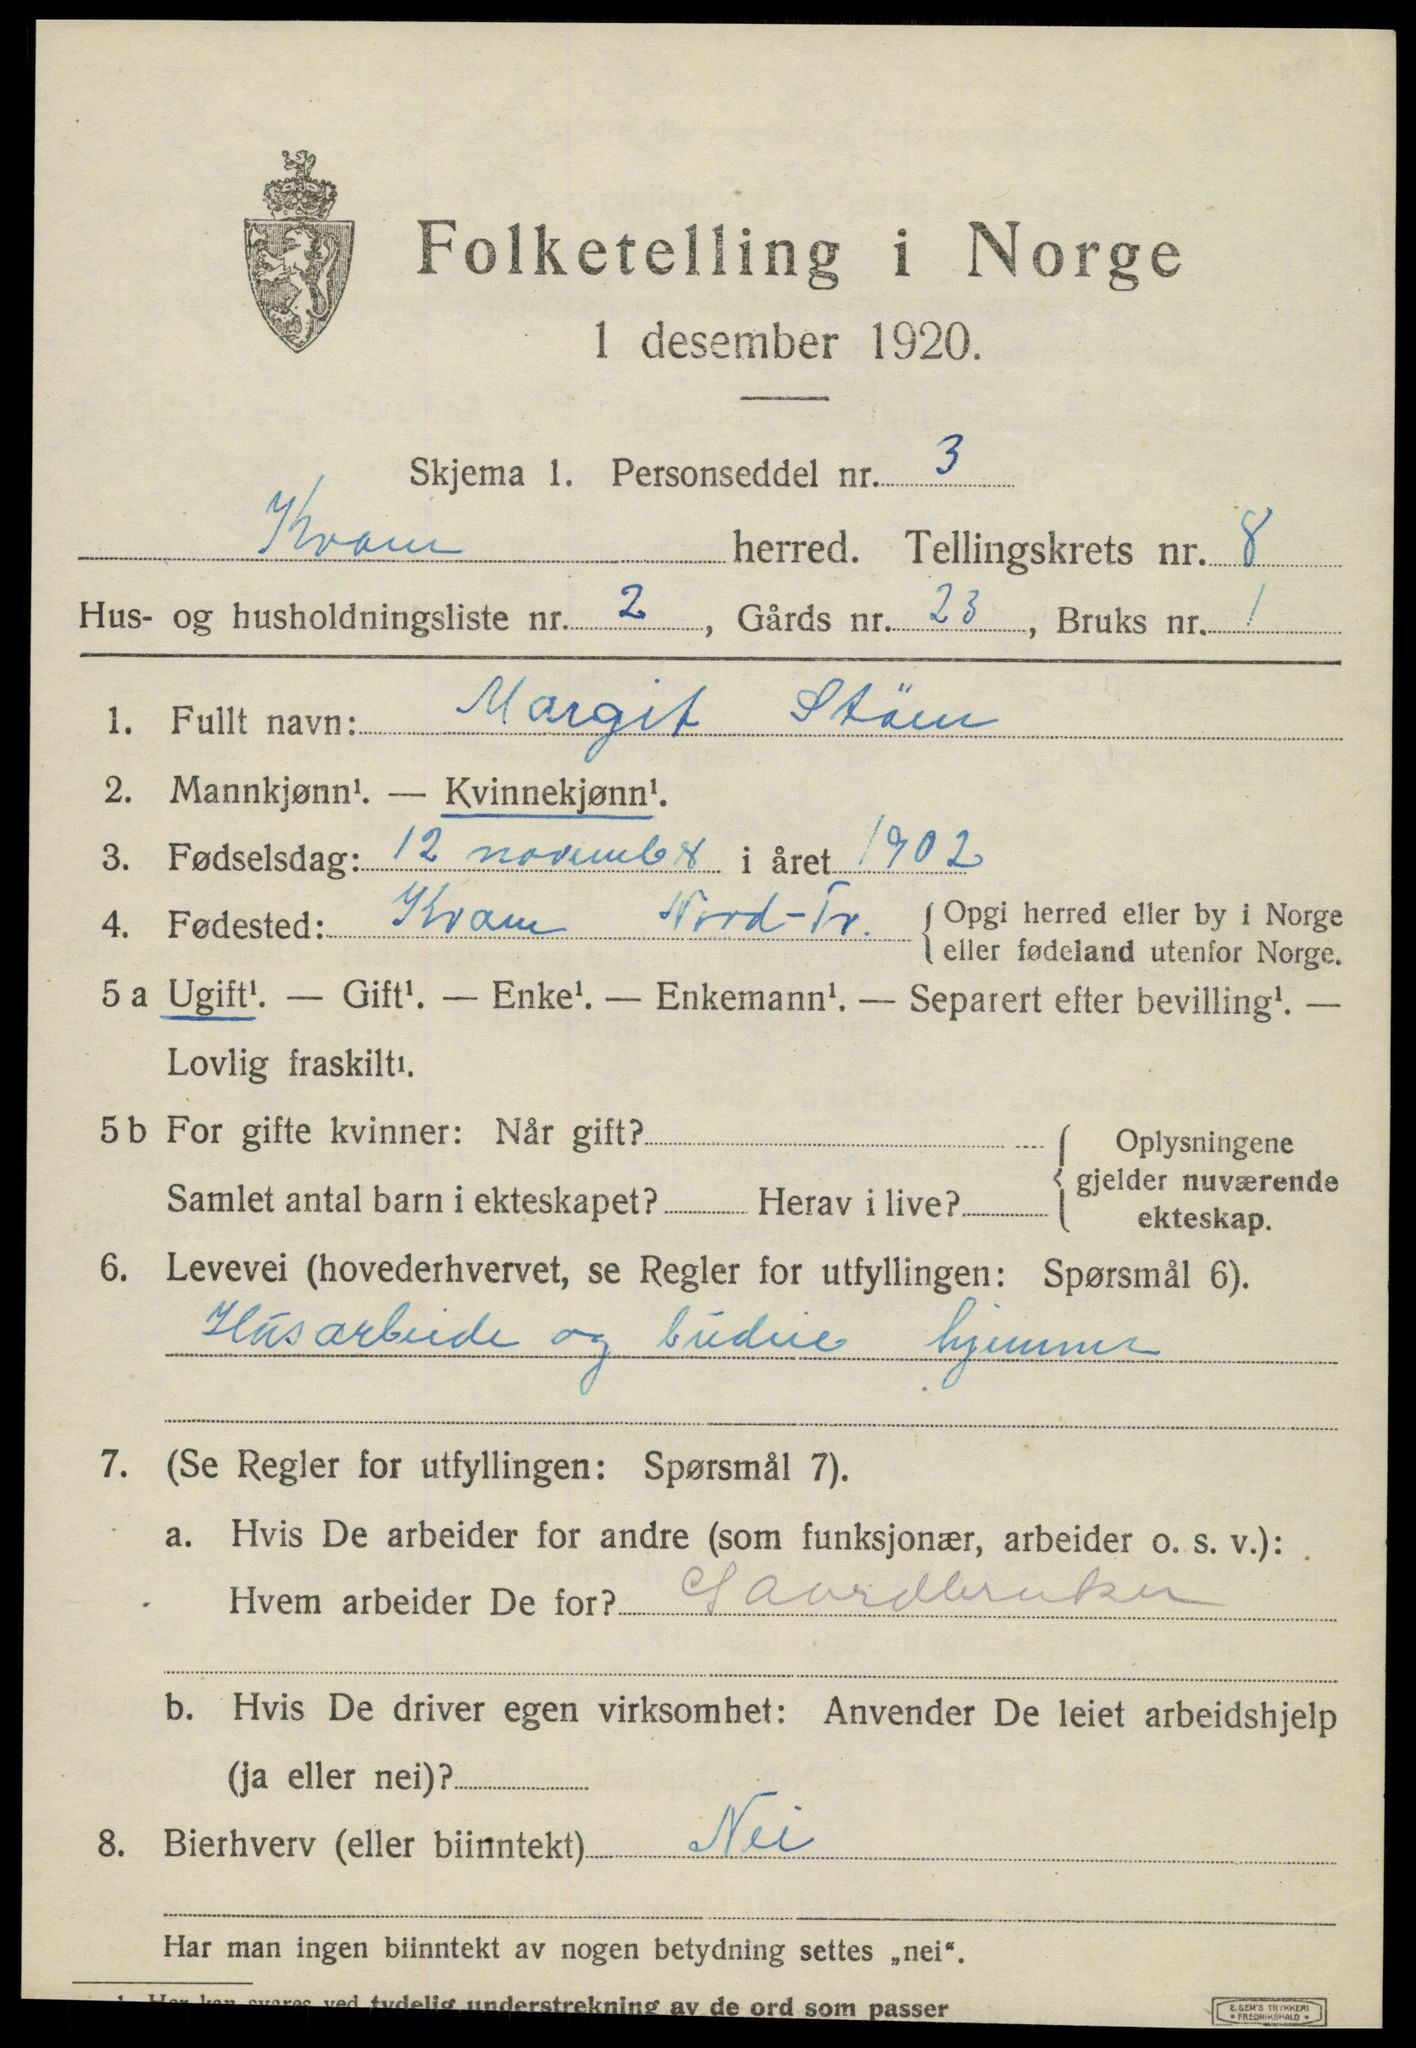 Folketelling i Norge
1 desember 1920.
Skjema 1. Personseddel nr. 3
Kvam herred. Tellingskrets nr. 8
Hus- og husholdningsliste nr. 2, Gårds nr. 23, Bruks nr. 1
1. Fullt navn: Margit Stöm
2. Mannkjønn¹. — Kvinnekjønn¹.
3. Fødselsdag: 12 november i året 1902
4. Fødested: Kvam Nord-Tr. { Opgi herred eller by i Norge
eller fødeland utenfor Norge.
5 a Ugift¹. — Gift¹. — Enke¹. — Enkemann¹. — Separert efter bevilling¹. —
Lovlig fraskilt¹.
5 b For gifte kvinner: Når gift? { Oplysningene
gjelder nuværende
Samlet antal barn i ekteskapet? Herav i live?
ekteskap.
6. Levevei (hovederhvervet, se Regler for utfyllingen: Spørsmål 6).
Husarbeide og budeie hjemme
7. (Se Regler for utfyllingen: Spørsmål 7).
a. Hvis De arbeider for andre (som funksjonær, arbeider o. s. v.):
Hvem arbeider De for? Gaardbruker
b. Hvis De driver egen virksomhet: Anvender De leiet arbeidshjelp
(ja eller nei)?
8. Bierhverv (eller biinntekt) Nei
Har man ingen biinntekt av nogen betydning settes „nei“.
1 Her kan svares ved tydelig understrekning av de ord som passer
E. SEM'S TRYKKERI
FREDRIKSHALD